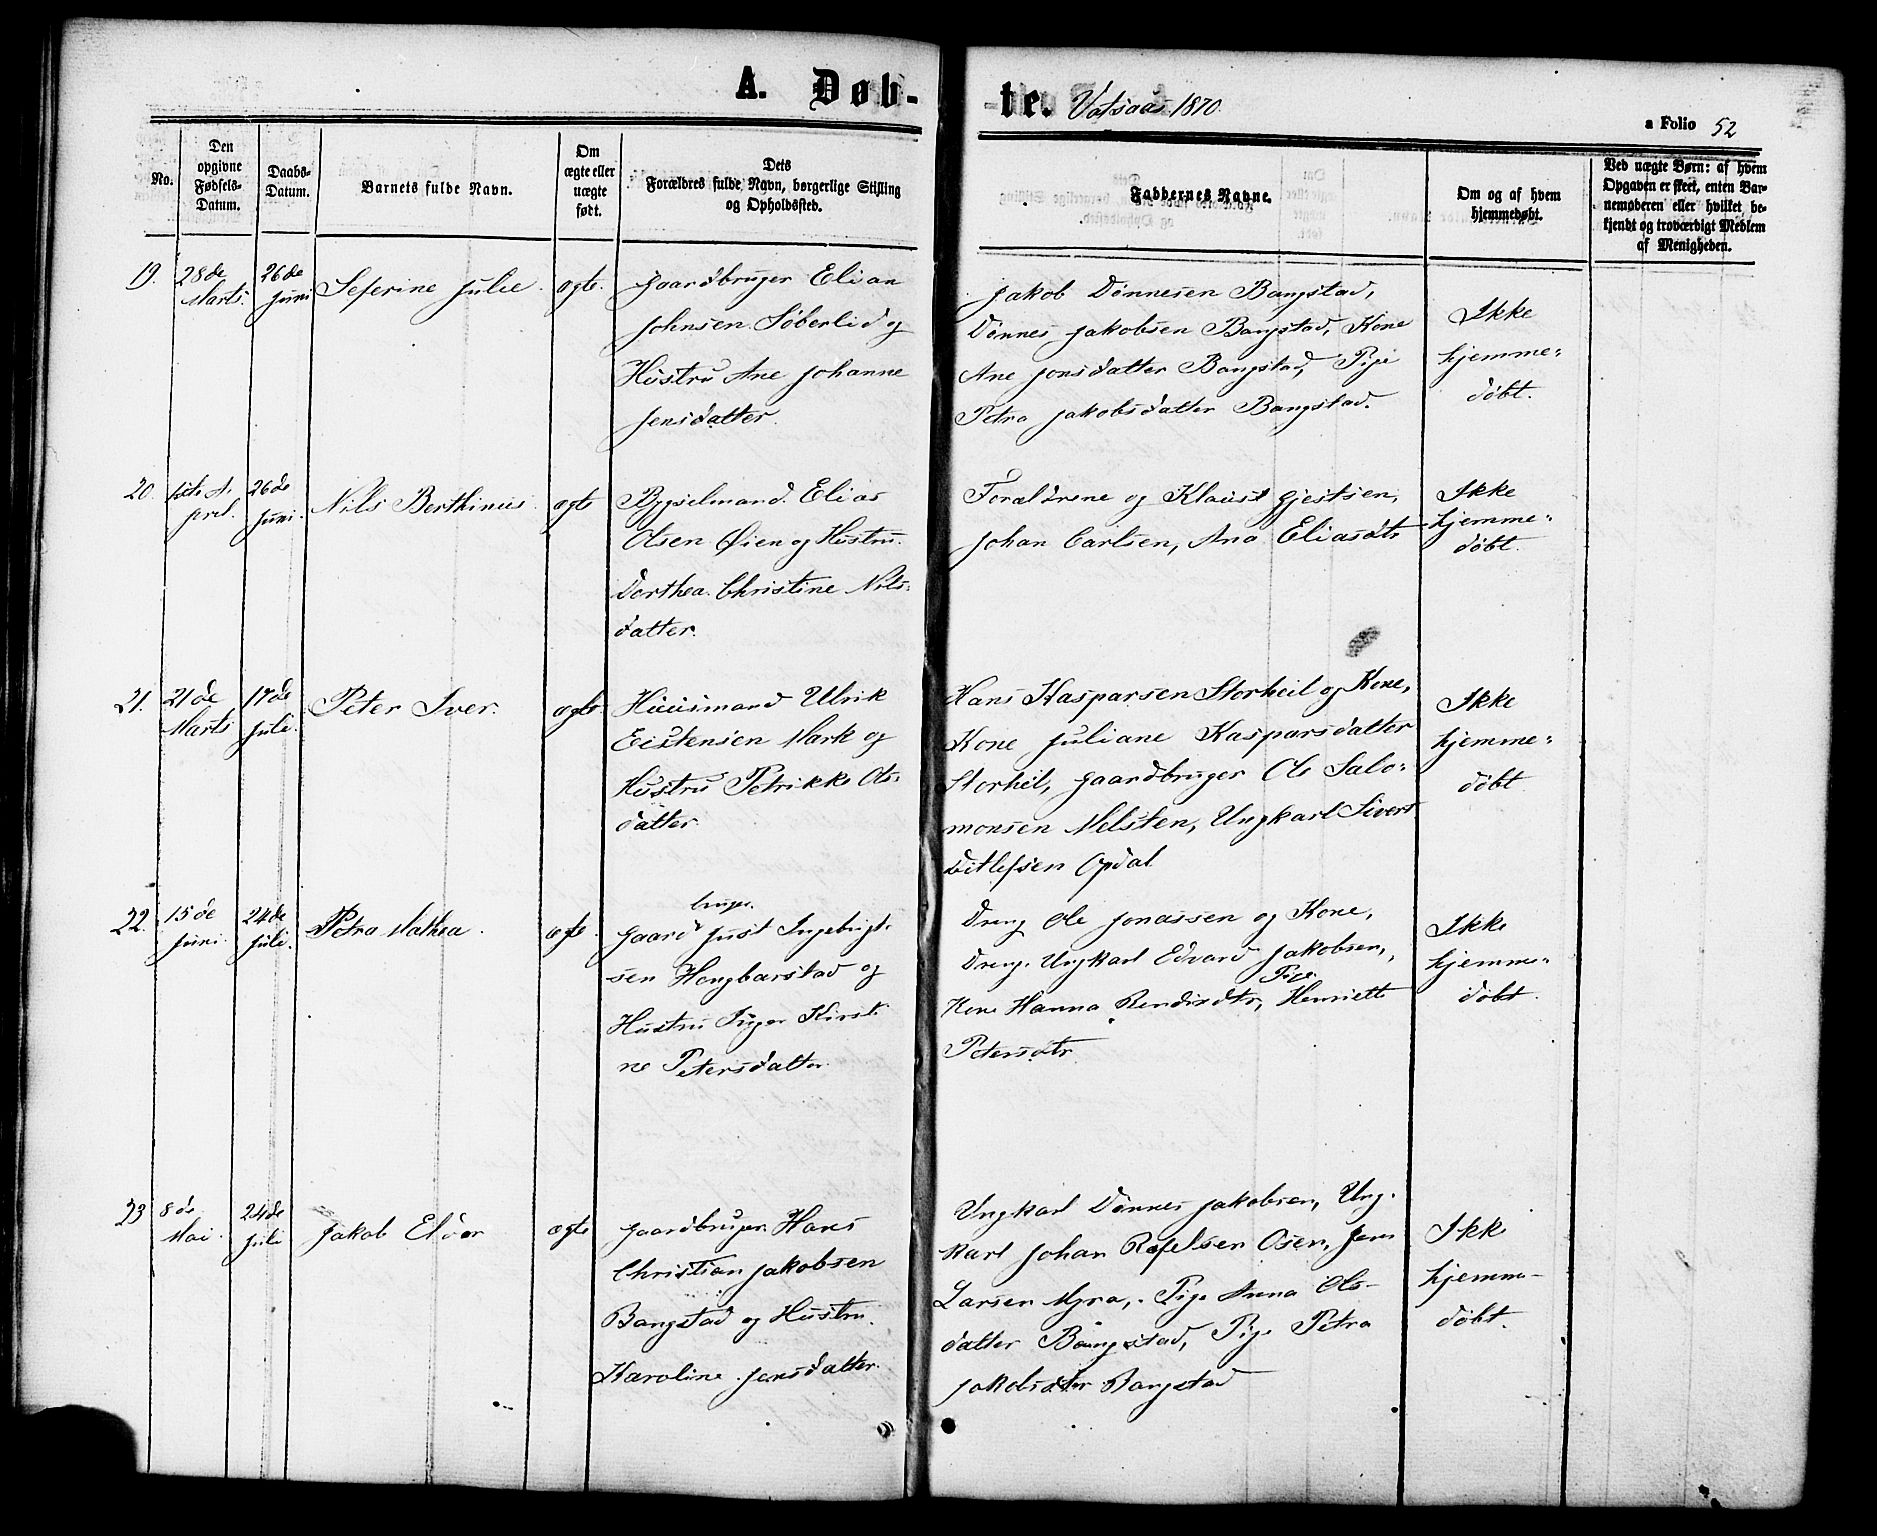 A. Døb-
te. Vatsaas 1870.
a Folio 52
No.
Den
opgivne
Fødsels-
Datum.
Daabs-
Datum.
Barnets fulde Navn.
Om
ægte eller
uægte
født.
Dets
Forældres fulde Navn, borgerlige Stilling
og Opholdssted.
Faddernes Navne.
Om og af hvem
hjemmedøbt.
Ved uægte Børn: af hvem
Opgaven er skeet, enten Bar-
nemoderen eller hvilket be-
kjendt og troværdigt Medlem
af Menigheden.
19.
28de
Marts.
26de
Juni
Seferine Julie.
ægte.
Gaardbruger Elian
Johnsen Søberlid og
Hustru Ane Johanne
Jensdatter.
Jakob Dønnesen Bangstad,
Dønnes Jakobsen Bangstad, Kone
Ane Jonsdatter Bangstad, Pige
Petra Jakobsdatter Bangstad.
Ikke
hjemme-
døbt.
20.
1ste A-
pril.
26de
Juni.
Nils Berthinus.
ægte
Bygselmand Elias
Olsen Øien og Hustru.
Dorthea Christine Nils-
datter.
Forældrene og Klaus Gjertsen,
Johan Carlsen, Ana Eliasdtr
Ikke
hjemme-
døbt.
21.
21de
Marts
17de
Juli.
Peter Iver.
ægte.
Huusmand Ulrik
Eistensen Mark og
Hustru Petrikke Ols-
datter.
Hans Kasparsen Storheil og Kone,
Kone Juliane Kasparsdatter
Storheil, Gaardbruger Ole Salo-
monsen Melsten, Ungkarl Sivert
Ditlefsen Opdal
Ikke
hjemme-
døbt
22.
15de
Juni.
24de
Juli.
Petra Mathea.
ægte.
bruger
Gaard Just Ingebrigt-
sen Hongbarstad og
Hustru Inger Kirsti-
ne Petersdatter.
Dreng Ole Jonassen og Kone,
Dreng. Ungkarl Edvard Jakobsen,
Pige
Kone Hanna Bendixdtr, Henriette
Petersdtr.
Ikke
hjemme-
døbt.
23
8de
Mai.
24de
Juli
Jakob Elvær
ægte
Gaardbruger Hans
Christian Jakobsen
Bangstad og Hustru.
Karoline Jensdatter.
Ungkarl Dønnes Jakobsen, Ung-
karl Johan Rafelsen Osen, Jens
Larsen Myra, Pige Anna Ols-
datter Bangstad, Pige Petra
Jakobsdtr Bangstad
Ikke
hjemme-
døbt.